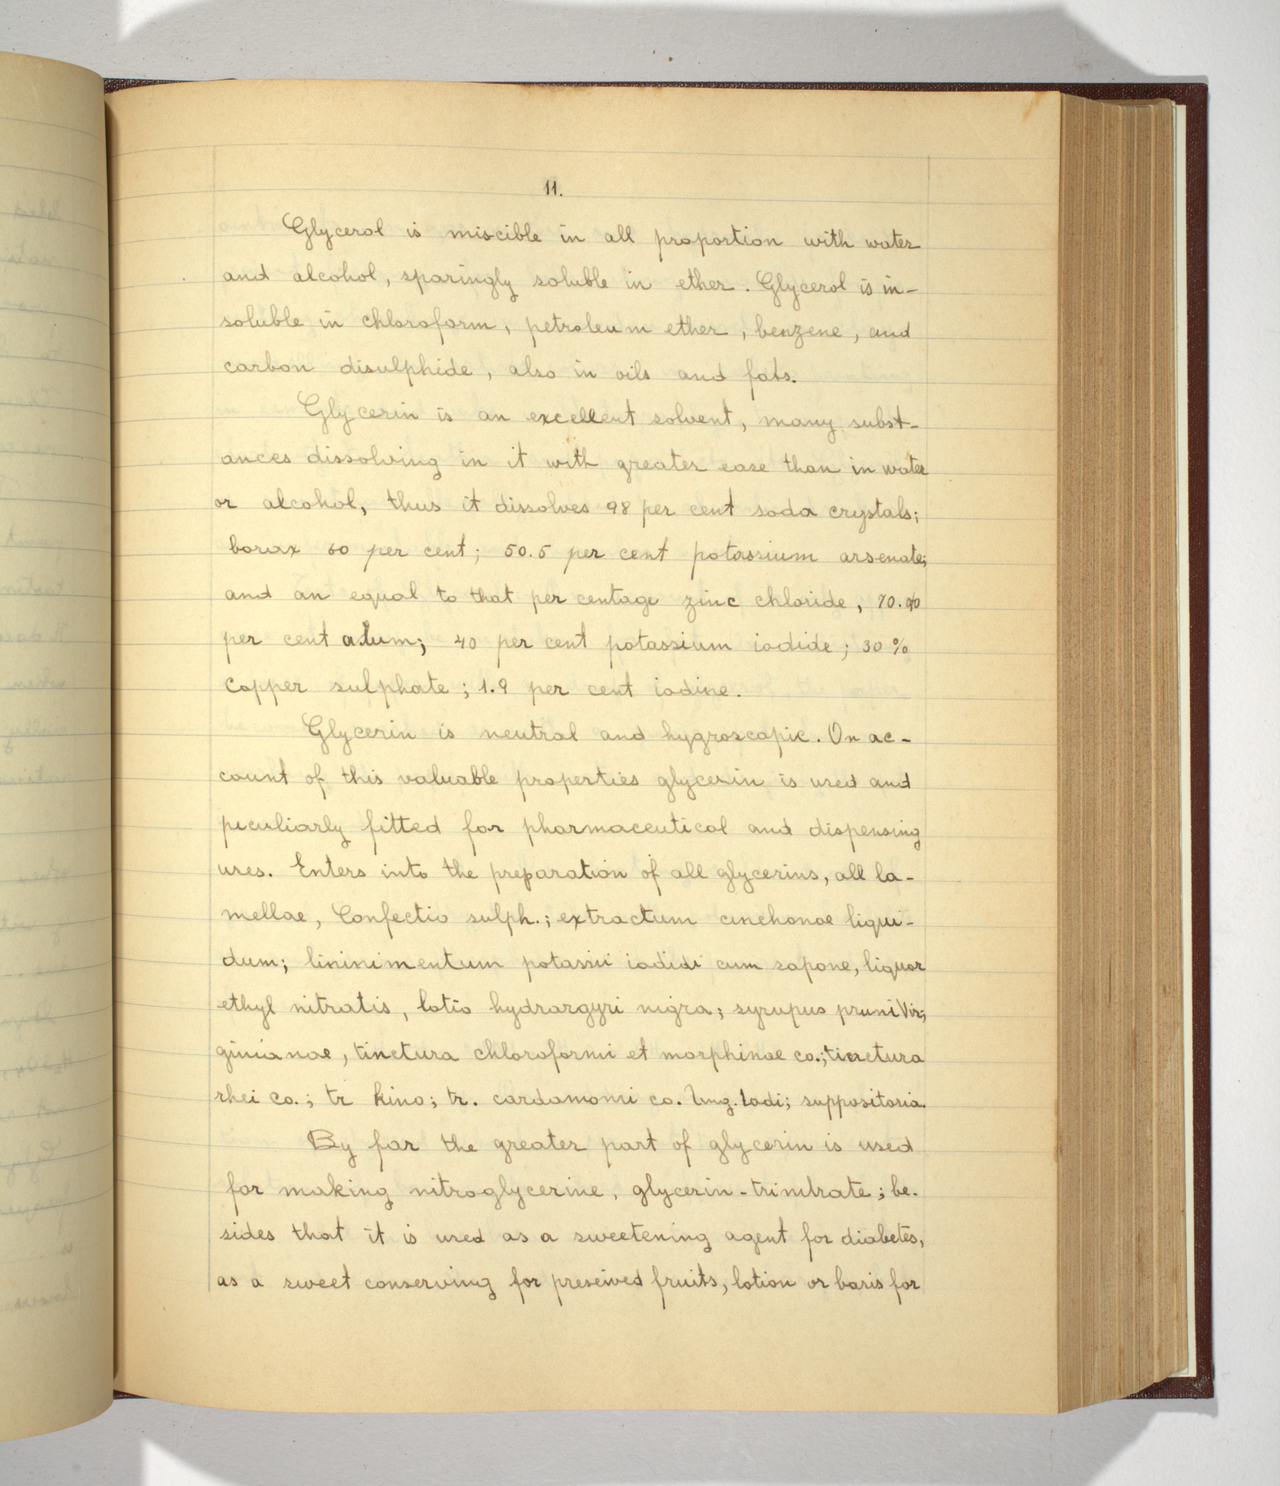 11.
Glycerol is miscible in all proportion with water
and alcohol, sparingly soluble in ether. Glycerol is in-
soluble in chloroform, petroleum ether, benzene, and
carbon disulphide, also in oils and fats.
Glycerin is an excellent solvent, many subst-
ances dissolving in it with greater ease than in water
or alcohol, thus it dissolves 98 per cent soda crystals;
borax 60 per cent; 50.5 per cent potassium arsenate;
and an equal to that per centage zinc chloride,
per cent alum; 40 per cent potassium iodide; 30 %
copper sulphate; 1.9 per cent iodine.
Glycerin is neutral and hygroscopic. On ac-
count of this valuable properties glycerin is used and
peculiarly fitted for pharmaceutical and dispensing
uses. Enters into the preparation of all glycerins, all la-
mellae, Confectio sulph.; extractum cinchonae liqui-
dum; lininimentum potassii iodidi cum sapone, liquor
ethyl nitratis, lotio hydrargyri nigra; syrupus pruni Vir-
ginianae, tinctura chloroformi et morphinae co.; tinctura
rhei co.; tr kino; tr. cardamomi co. Ung. Iodi; suppositoria.
By far the greater part of glycerin is used
for making nitroglycerine, glycerin-trinitrate; be-
sides that it is used as a sweetening agent for diabetes,
as a sweet conserving for preseived fruits, lotion or basis for